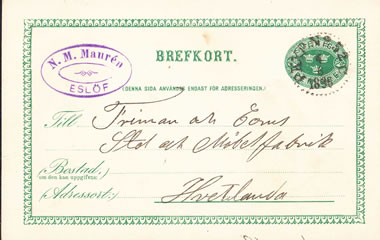 N. M. Maurén
ESLÖF
BREFKORT.
(DENNA SIDA ANVÄNDES ENDAST FÖR ADRESSERINGEN.)
Till Friman och Eorns
Stol och Möbelfabrik
(Bostad,
om den kan uppgifvas)
(Adressort:) Hvetlanda